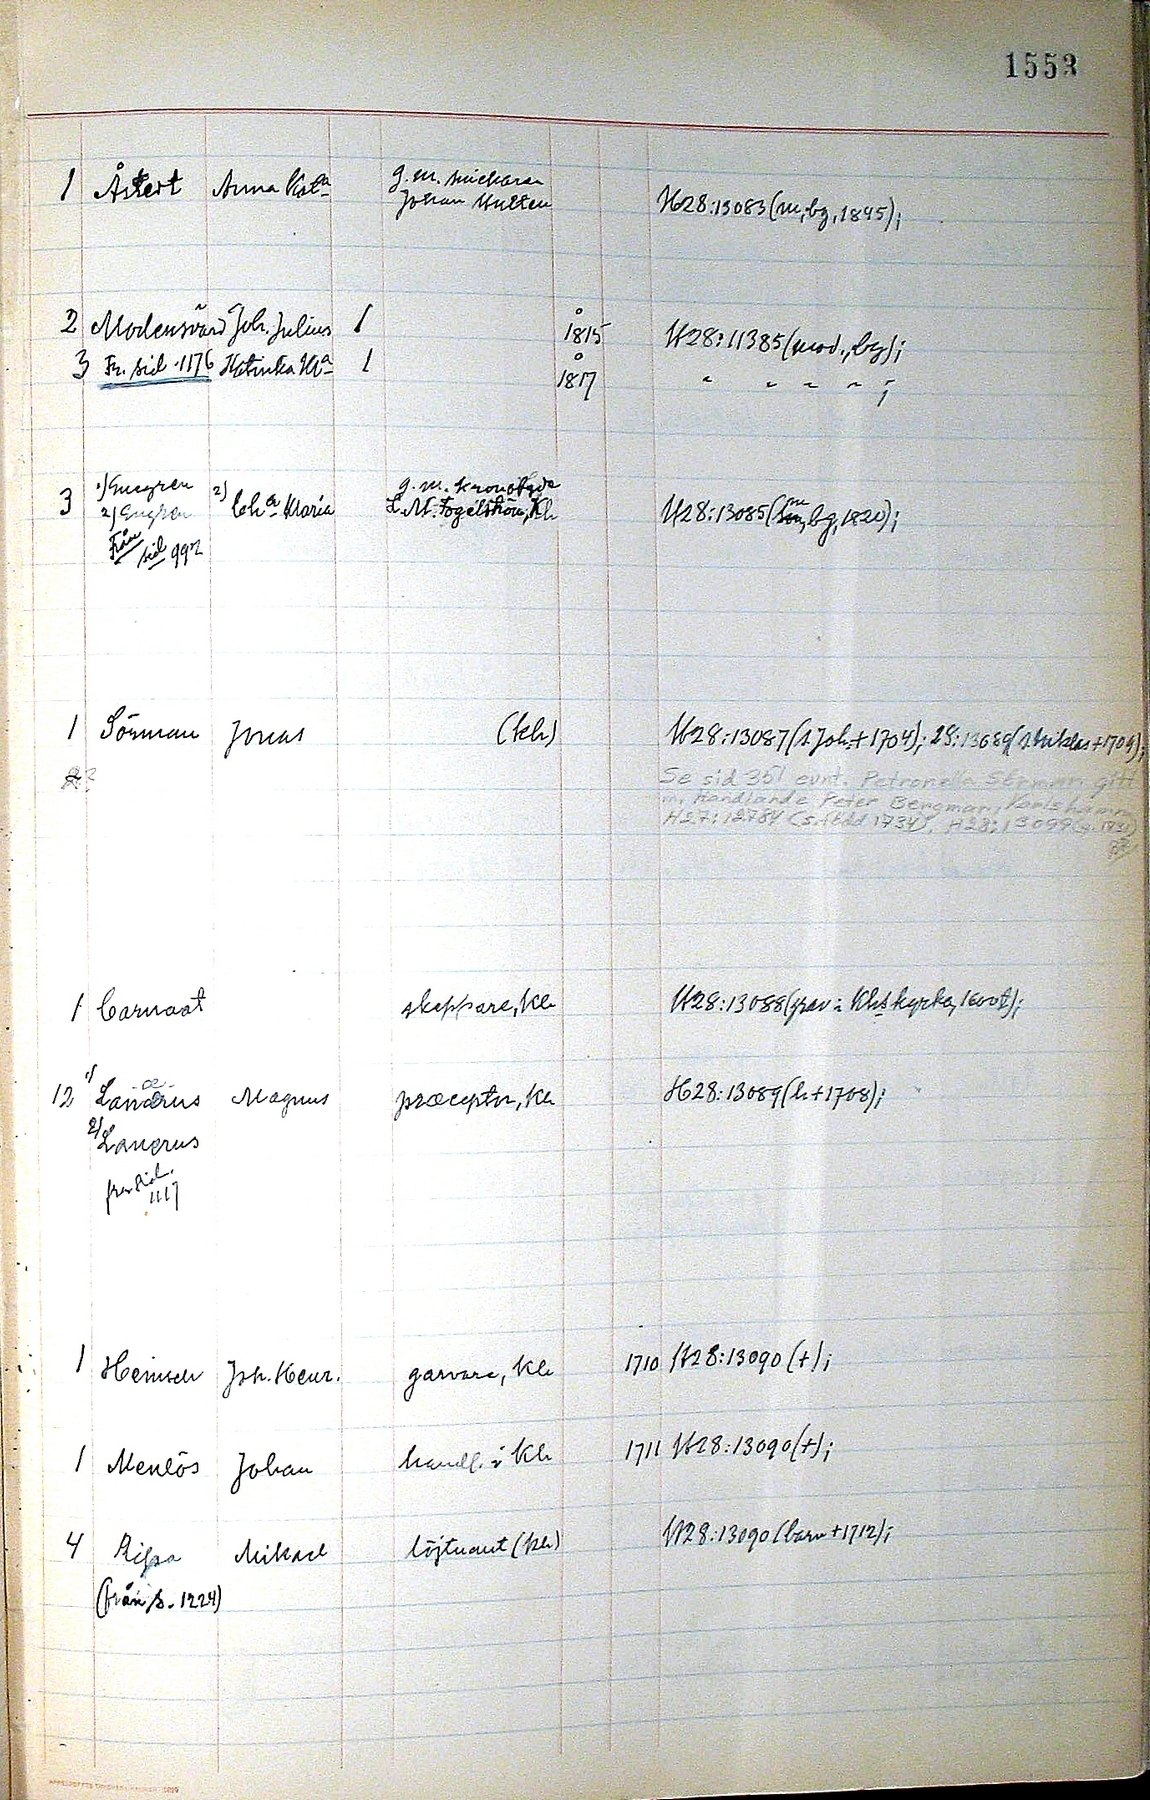 1553
1 Åkert Anna Kata g.m. snickaren
Johan Hulten H28:13083 (m, bg, 1845);
2 Modensvärd Joh. Julius 1 1815 H28:11385 (mod., bg);
3 Fr. sid. 1176 Katinka 1 1817 " " " " " ;
1) Enegren g.m. kronofgde
3 2) Engren 2) Cha Maria L.M. Fogelström, Kh H28:13085 (m, bg, 1820);
Från
sid 992
1 Sörman Jonas (kh) H28:13087 (s Joh. + 1704); 28:13089 (s Niklas + 1709);
2? Se sid 351 evnt. Petronella Sörman gift
m. Handlande Peter Bergman, Karlshamn
H27:12784 (s. född 1734), H28:13099
1 Carnaat skeppare, Kh H28:13088 (grav i Khs kyrka, 1600t);
12 1) Lanærus Magnus præceptor, Kh H28:13089 (h. + 1708);
2) Lanerus
från sid.
1117
1 Heinsch Joh. Henr. garvare, Kh 1710 H28:13090 (+);
1 Menlös Johan handl. i Kh 1711 H28:13090 (+);
4 Ripa Mikael löjtnant (kh) H28:13090 (barn + 1712);
(från s. 1224)